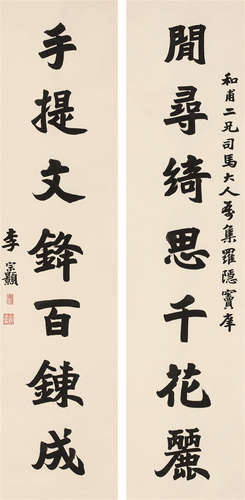 和甫二兄司馬大人集羅隱竇庠
閒尋綺思千花麗
手提文鋒百鍊成
李宗顥